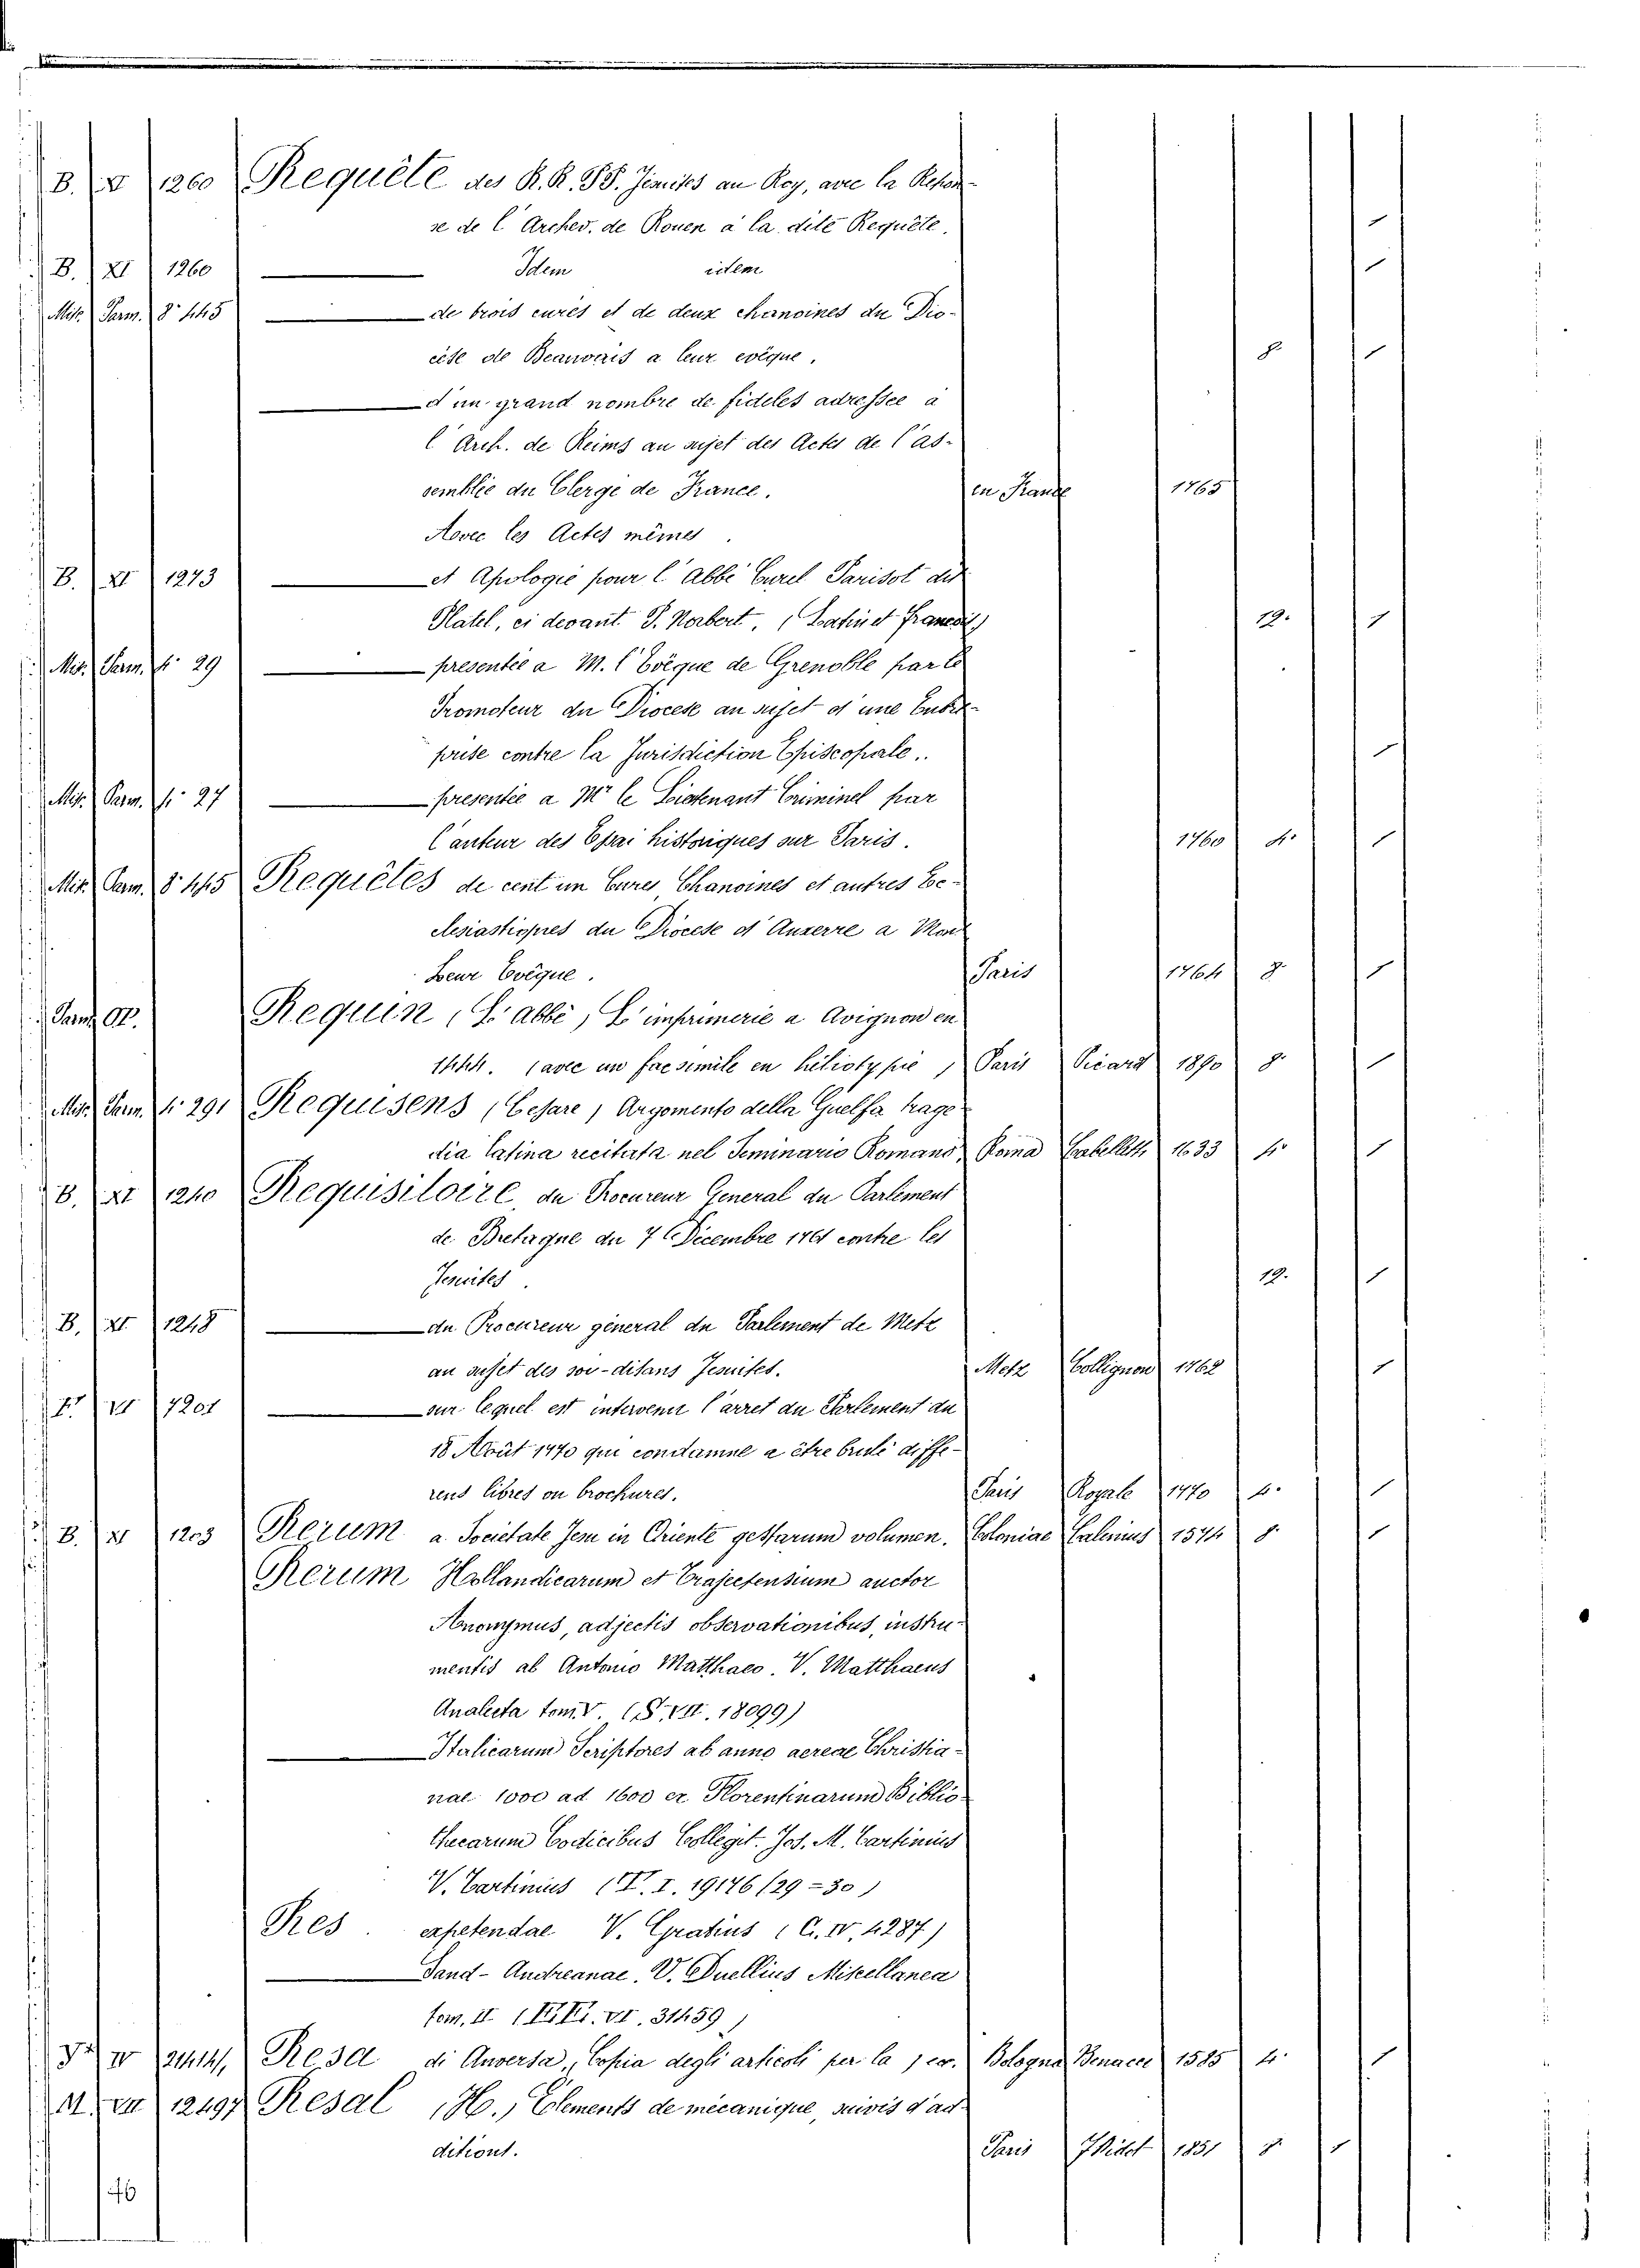 B. V 1260 Requête des R. R. P.P. Jesuites au Roy, avec la Repon-
se de l'Archev. de Rouen à la dite Requête. 1
B. XI 1260 Idem idem 1
Misc. Parm. 8° 445 de trois curés et de deux chanoines du Dio-
cèse de Beauvais a leur evêque. 8. 1
d'un grand nombre de fideles adressee a
l'Arch. de Reims au sujet des Actes de l'as-
semblée du Clergé de France. en France 1765
Avec les Actes mêmes.
B. XI 1273 et Apologie pour l'Abbé Curel Parisot dit
Platel, ci devant P. Norbert, (Latin et Francois) 12. 1
Misc. Parm. 4° 29 presentée a M. l'Evêque de Grenoble par le
Promoteur du Diocese au sujet d'une Entre-
prise contre la Jurisdiction Episcopale. 1
Misc. Parm. 4° 27 presentée a Mr le Lieutenant Criminel par
l'auteur des Essai historiques sur Paris. 1760 4. 1
Misc. Parm. 8° 445 Requêtes de cent un Cures, Chanoines et autres Ec-
clesiastiques du Diocèse d'Auxerre a Mon
Leur Evêque. Paris 1764 8. 1
Parm. Requin, (L'abbé,) L'imprimerie a Avignon en
1444. (avec un facsimile en héliotypie) Paris Picard 1890 8. 1
Misc. Parm. 4° 291 Requisens, (Cesare,) Argomento della Guelfa trage-
dia latina recitata nel Seminario Romano, Roma 1633 4. 1
B. XI 1240 Requisitoire du Procureur General du Parlement
de Bretagne du 7 Dicembre 1761 contre les
Jesuites. 12. 1
B. XI 1248 du Procureur général du Parlement de Metz
au sujet des soi-disans Jesuites. Metz Collignon 1762 1
VI 7201 sur lequel est intervenu l'arret du Parlement du
18 Août 1770 qui condamne a être brulé diffe-
rens libres ou brochures. Paris Royale 1770 4. 1
B. XI 1203 Rerum a Societate Jesu in Oriente gestarum volumen. Coloniae Calenius 1574 8. 1
Rerum Hollandicarum et Trajectensium auctor
Anonymus, adjectis observationibus, instru-
mentis ab Antonio Matthaeo. V. Matthaeus
Analecta tom. V. (S. VII. 18099)
Italicarum Scriptores ab anno aereae Christia-
nae 1000 ad 1600 ex Florentinarum Biblio-
thecarum Codicibus Collegit. Jos. M. Tartinius
V. Tartinius (T. I. 19176/29-30)
Res expetendae V. Gratius (C. IV. 4287)
Sand-Andreanae. V. Duellius Miscellanea
tom. II (VI. 31459)
IV 24141, Resa di Anversa, Copia degli articoli per la Bologna Benacci 1585 4. 1
M. VII 12497 Resal, (H.,) Elements de mécanique, suivis d'ad-
ditions. Paris 1851 8. 1
46